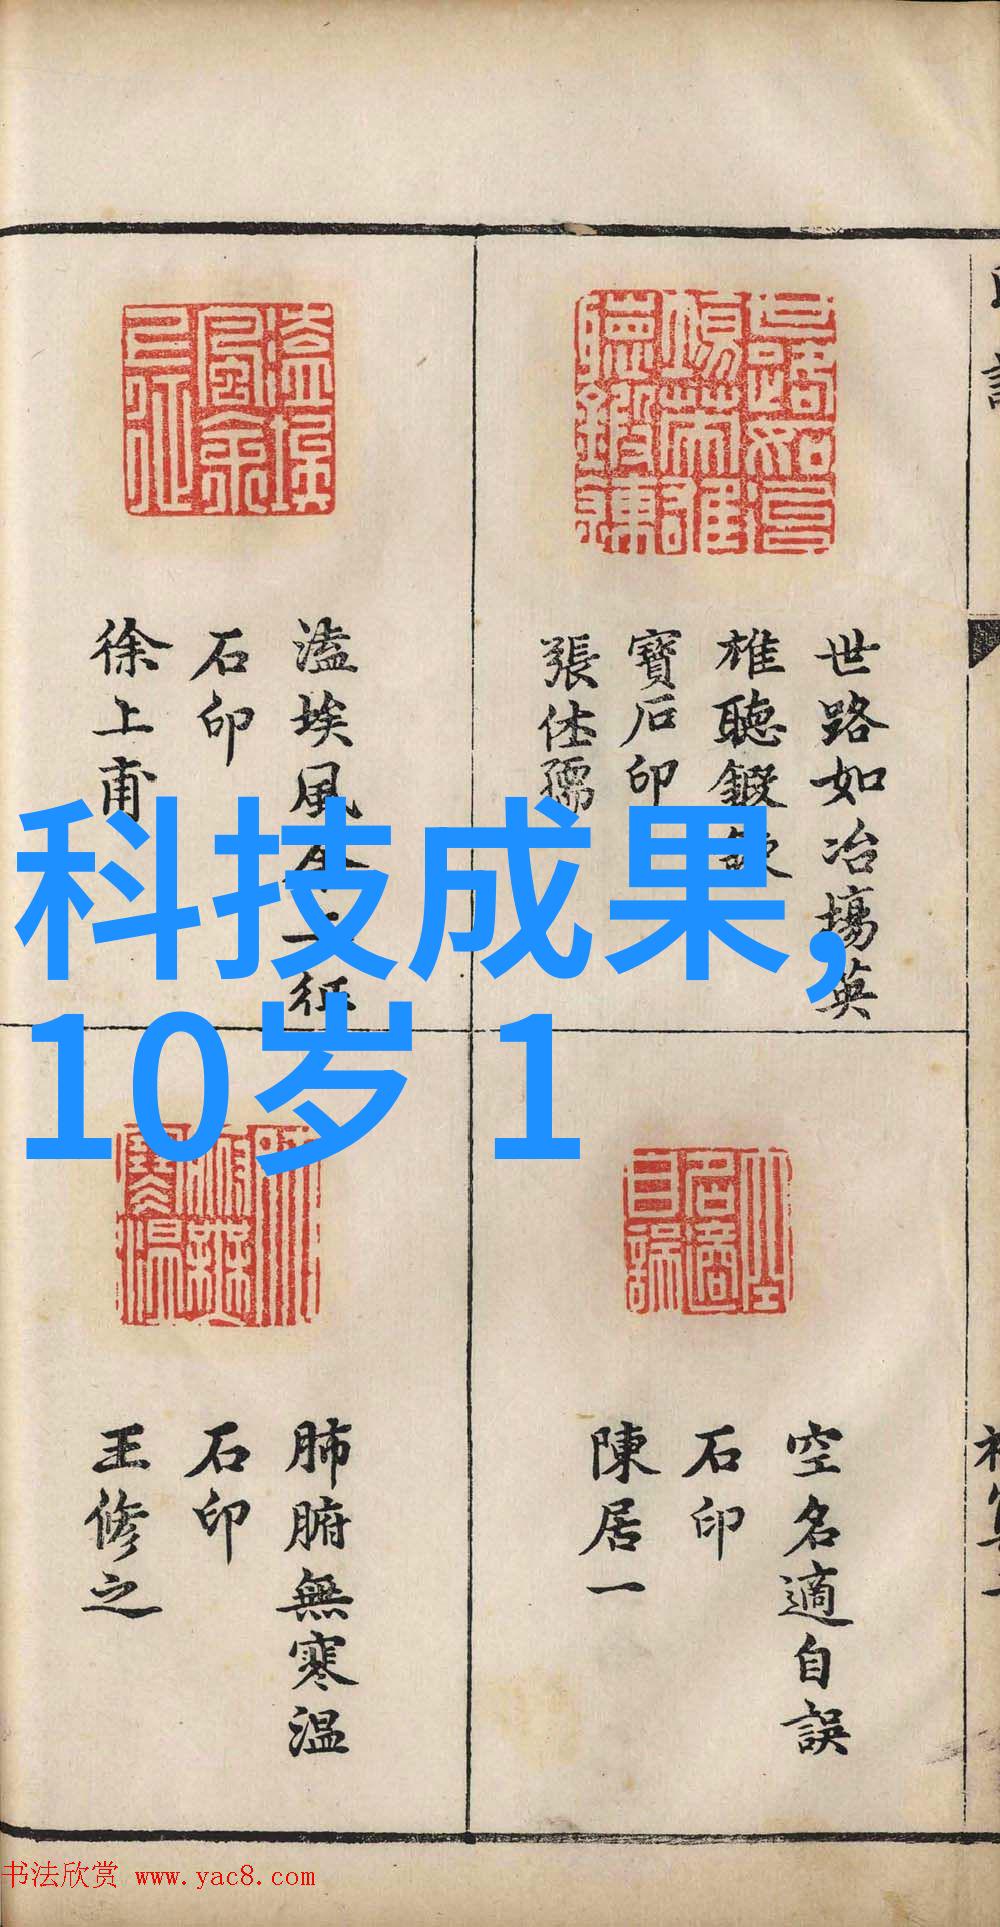 世路如冶場英
雄聽鍛
寶石印
張仕孺
溘埃風余上征
石印
徐上甫
科技成果,
10岁 1
空名適自誤
石印
陳居一
肺腑無寒温
石印
王修之
书法欣赏 www.yac8.com